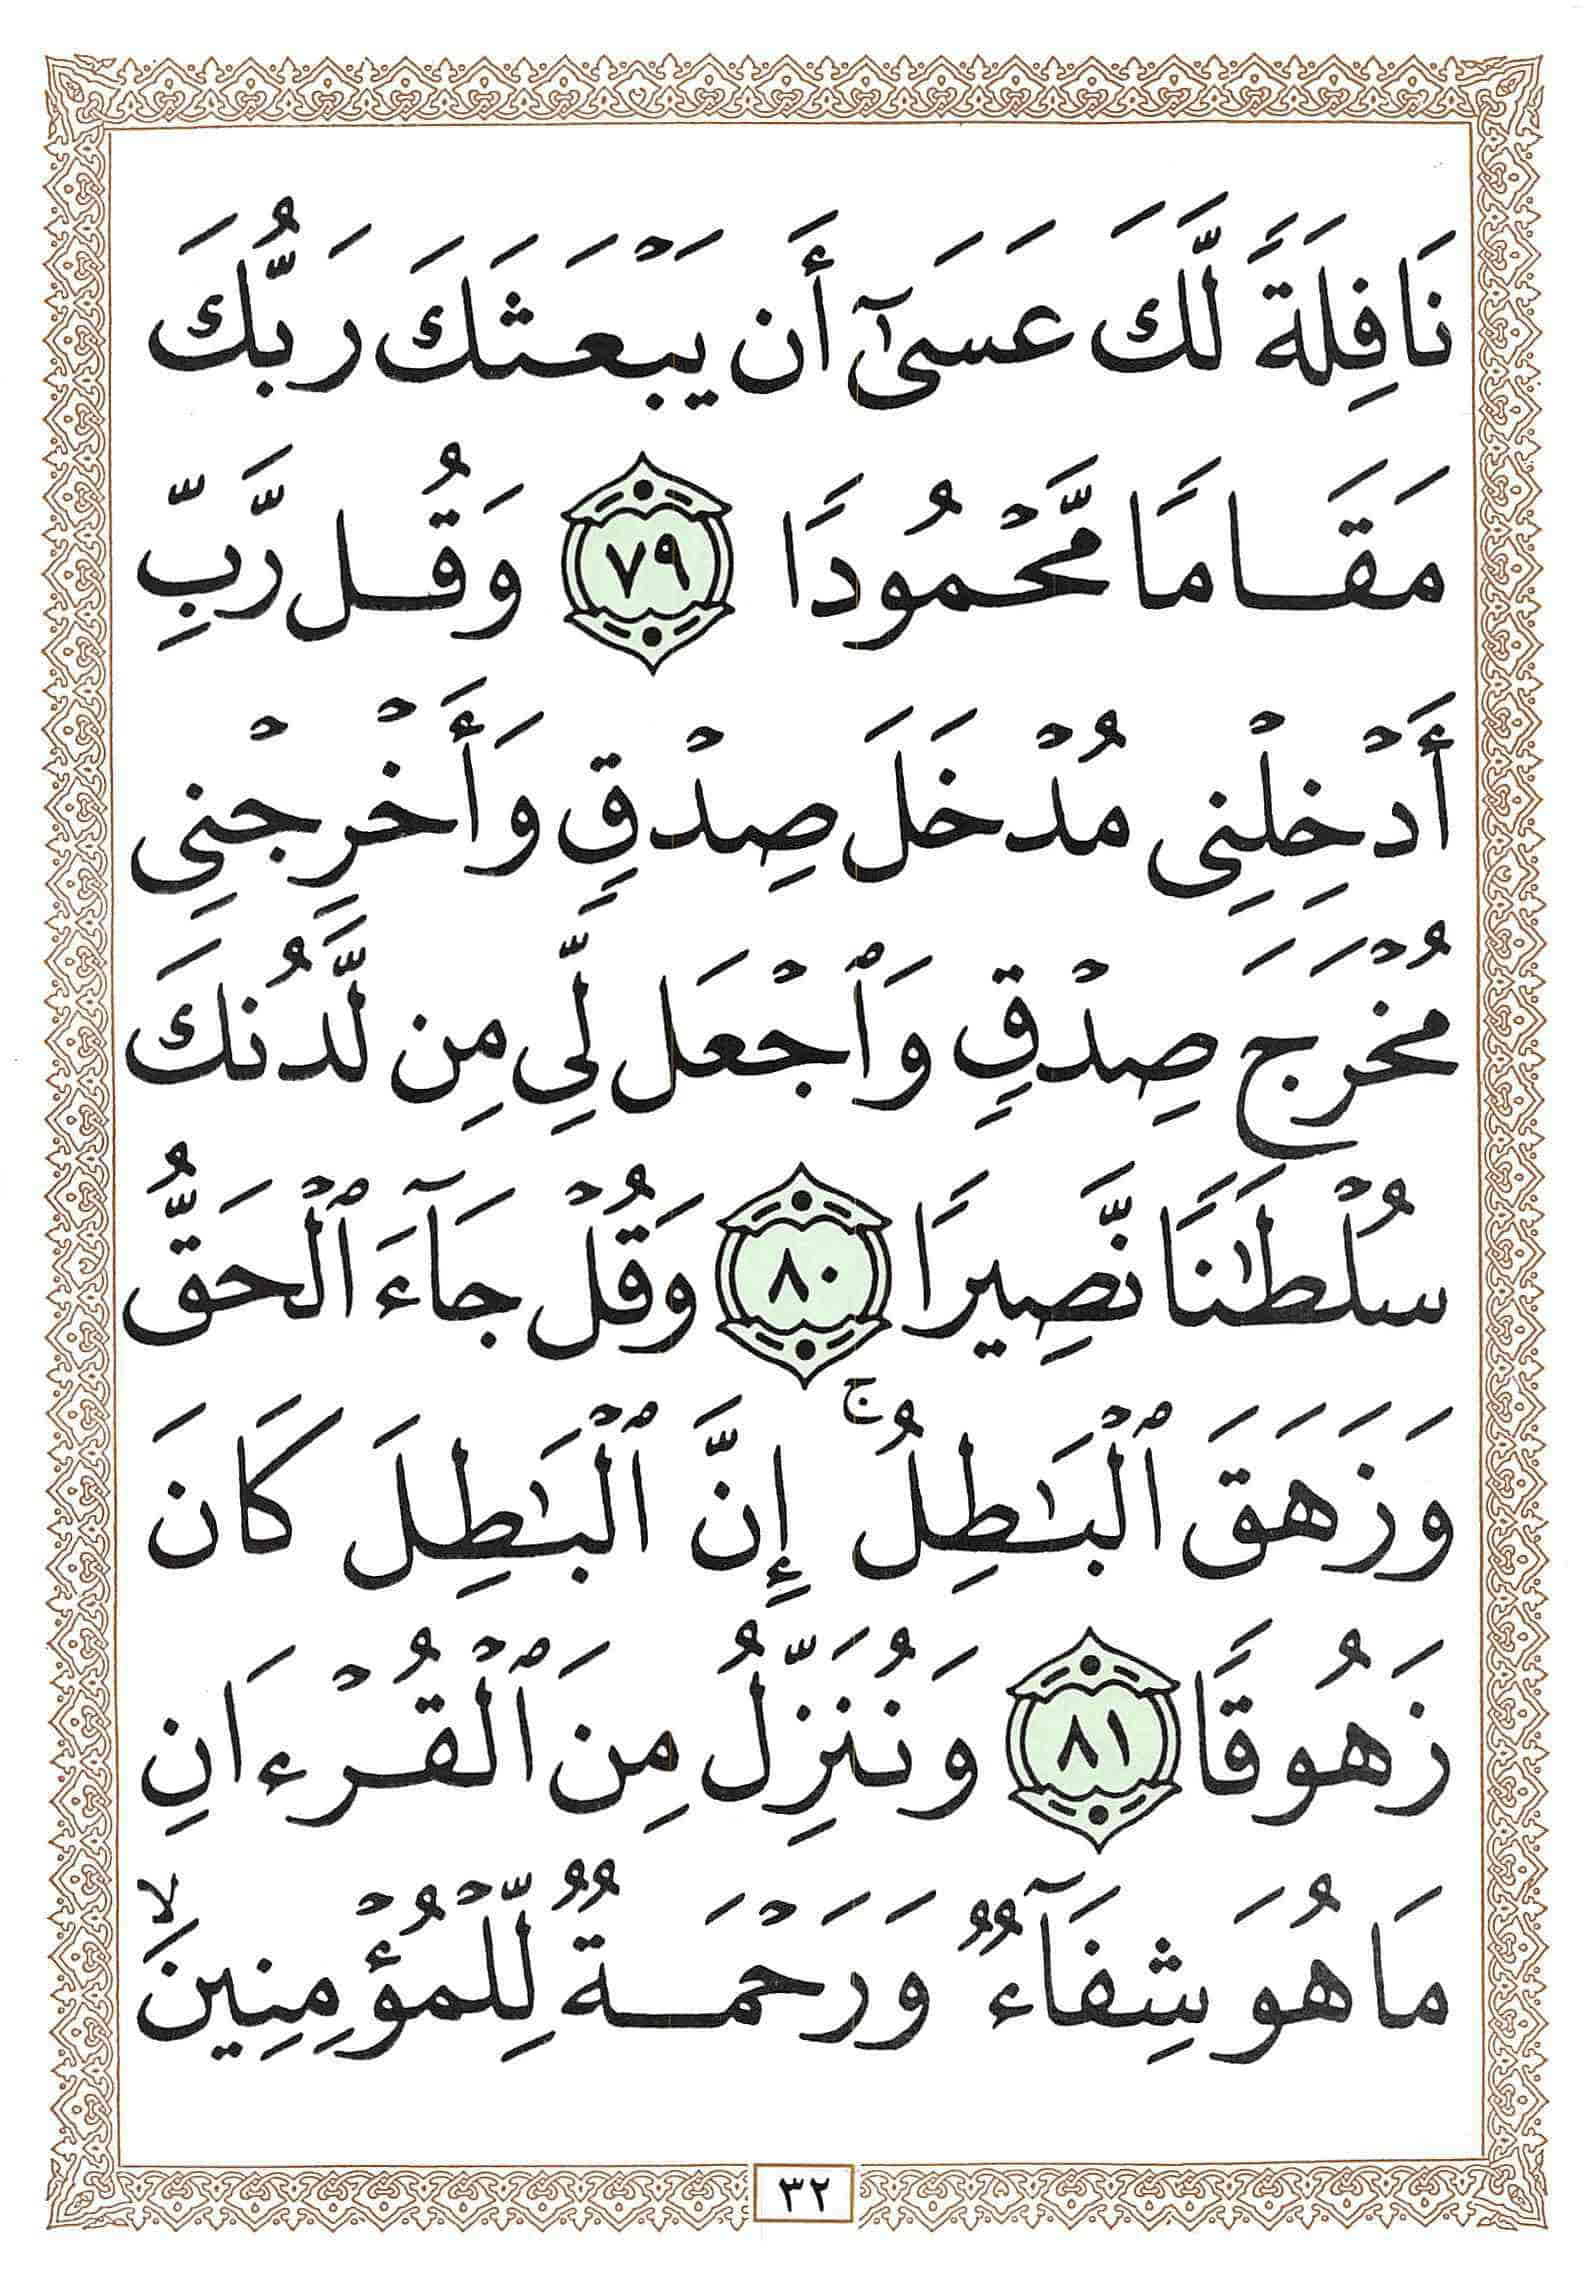 نَافِلَةً لَّكَ عَسَىٰٓ أَن يَبْعَثَكَ رَبُّكَ
مَقَامًا مَّحْمُودًا ٧٩ وَقُل رَّبِّ
أَدْخِلْنِى مُدْخَلَ صِدْقٍ وَأَخْرِجْنِى
مُخْرَجَ صِدْقٍ وَٱجْعَل لِّى مِن لَّدُنكَ
سُلْطَٰنًا نَّصِيرًا ٨٠ وَقُلْ جَآءَ ٱلْحَقُّ
وَزَهَقَ ٱلْبَٰطِلُ ۚ إِنَّ ٱلْبَٰطِلَ كَانَ
زَهُوقًا ٨١ وَنُنَزِّلُ مِنَ ٱلْقُرْءَانِ
مَا هُوَ شِفَآءٌ وَرَحْمَةٌ لِّلْمُؤْمِنِينَ ۙ
٣٢